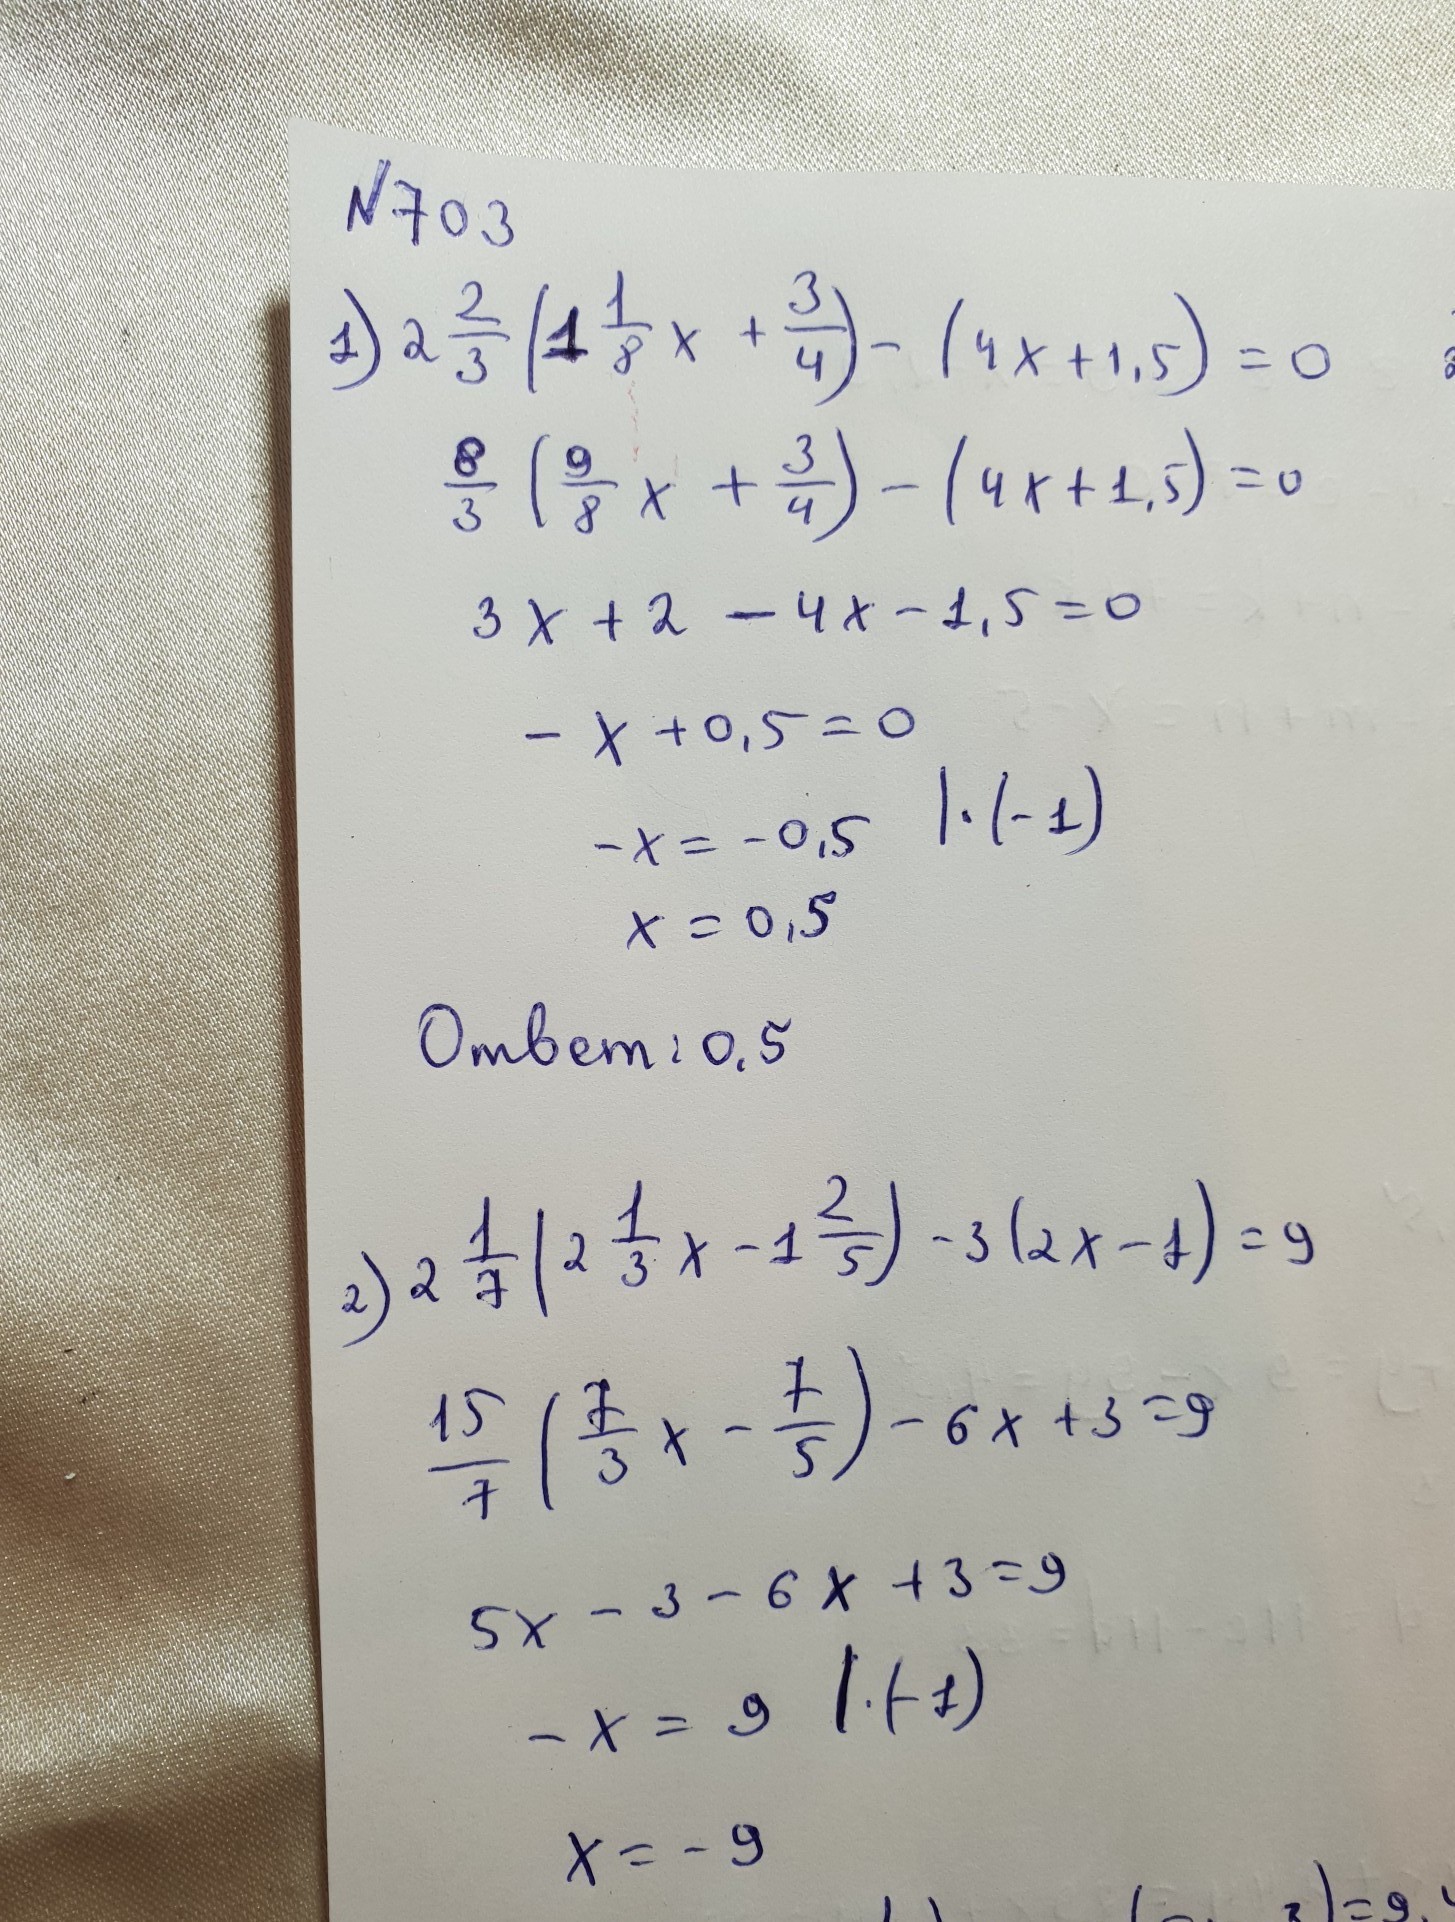 N703
1) 2 2/3 (1 1/8 x + 3/4) - (4x+1,5) = 0
8/3 (9/8 x + 3/4) - (4x+1,5) = 0
3x + 2 - 4x - 1,5 = 0
- x + 0,5 = 0
-x = -0,5 |·(-1)
x = 0,5
Ответ: 0,5
2) 2 1/7 (2 1/3 x - 1 2/5) - 3(2x - 1) = 9
15/7 (7/3 x - 7/5) - 6x + 3 = 9
5x - 3 - 6x + 3 = 9
- x = 9 |·(-1)
x = - 9